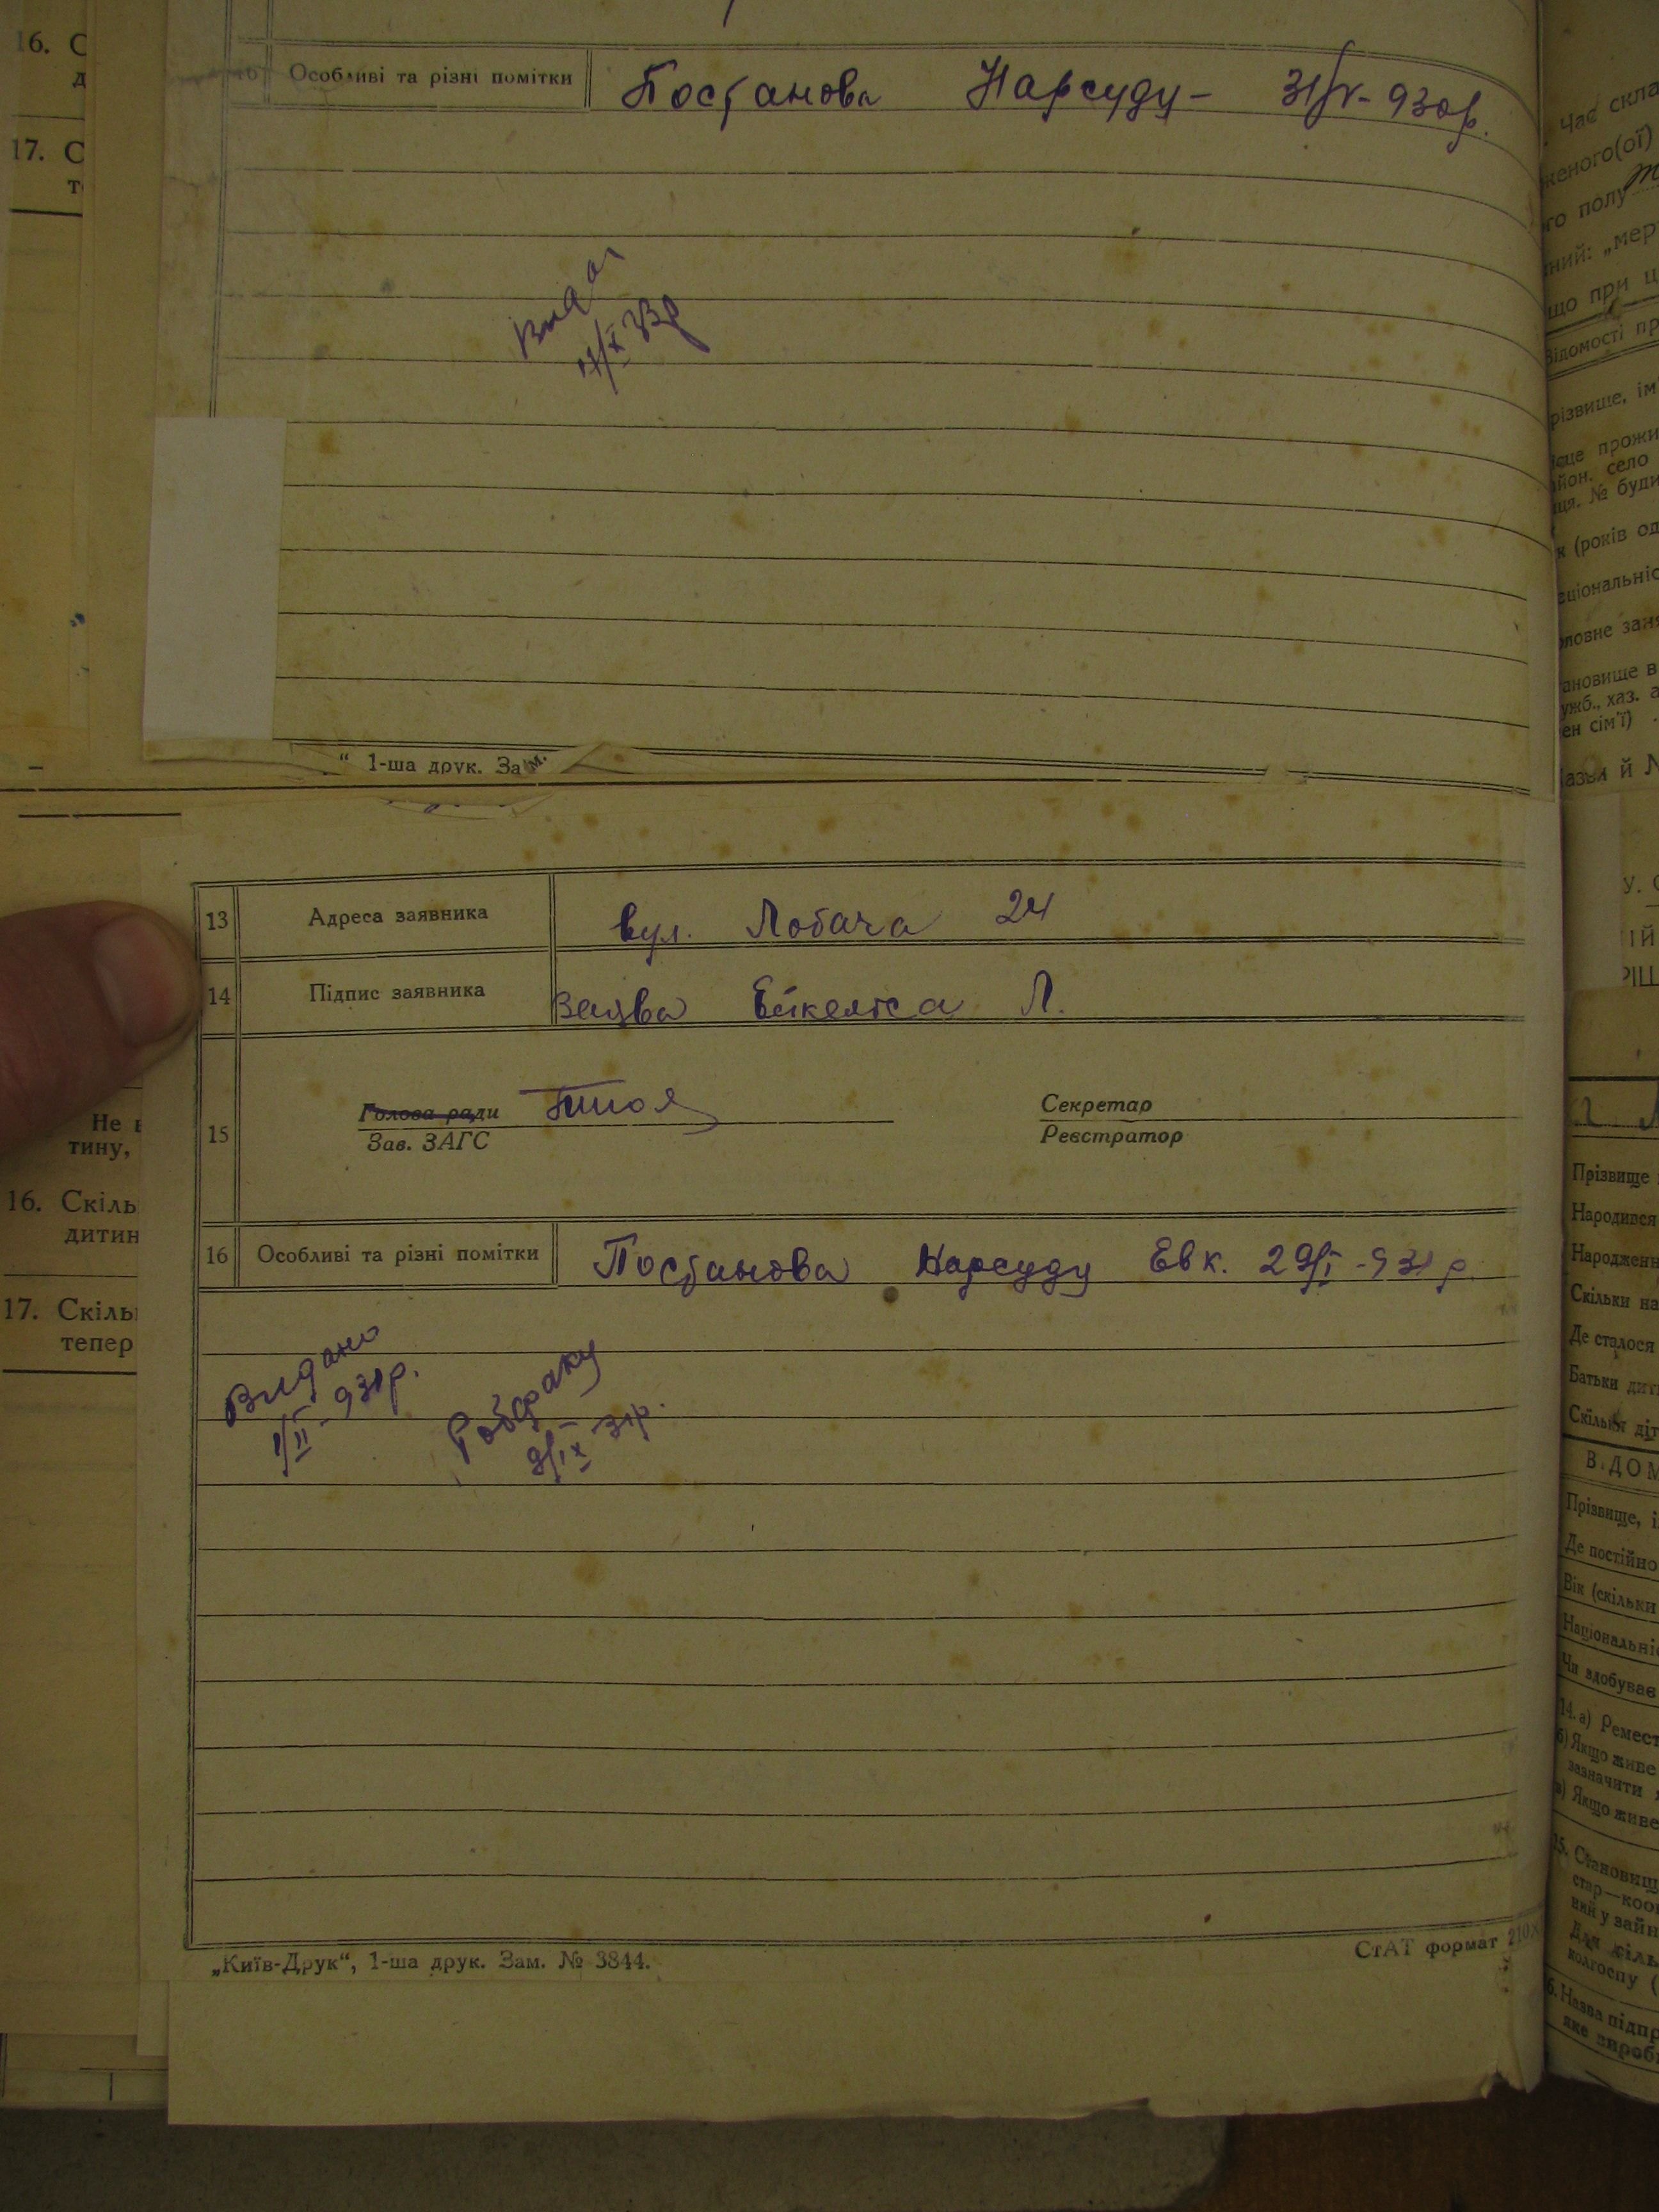 16. С
д
17. С
т
Особливі та різні помітки Постанова Нарсуду – 31/V - 930р.
Видан
/X 33р
“ 1-ша друк. Зам.
13 Адреса заявника вул. Лобача 24
14 Підпис заявника Заява Л.
15 Голова ради Секретар
Зав. ЗАГС Реєстратор
16 Особливі та різні помітки Постанова Нарсуду Евк. 29/I - 931 р.
Видано
1/II - 931р.
Робфаку
9/IX - 31р.
„Київ-Друк“, 1-ша друк. Зам. № 3844.
СтАТ формат 210х
Не в
тину,
16. Скіль
дитин
17. Скіль
тепер
Час скла
женого(ої)
го полу
ний: „мер
що при ц
Відомості пр
різвище, ім
ісце прожи
айон. село
ця. № буди
к (років од
аціональніс
оловне зан
ановище в
ужб., хаз. а
ен сім'ї)
Назва й №
Прізвище
Народився
Народженн
Скільки на
Де сталося
Батьки дит
Скільки діт
ВІДОМ
Прізвище, і
Де постійно
Вік (скільки
Національні
Чи здобуває
14. а) Ремест
б) Якщо живе
зазначити
в) Якщо живе
15. Становищ
стар—кооп
ний у зайн
Для сіль
колгоспу (
6. Назва підпр
яке вироб